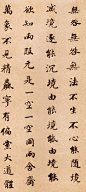 無咎無法不生不心能隨境
滅境逐能沉境由能境能由境能
欲知兩段元是一空一空同兩齊含
萬象不見精麤寧有偏黨大道體